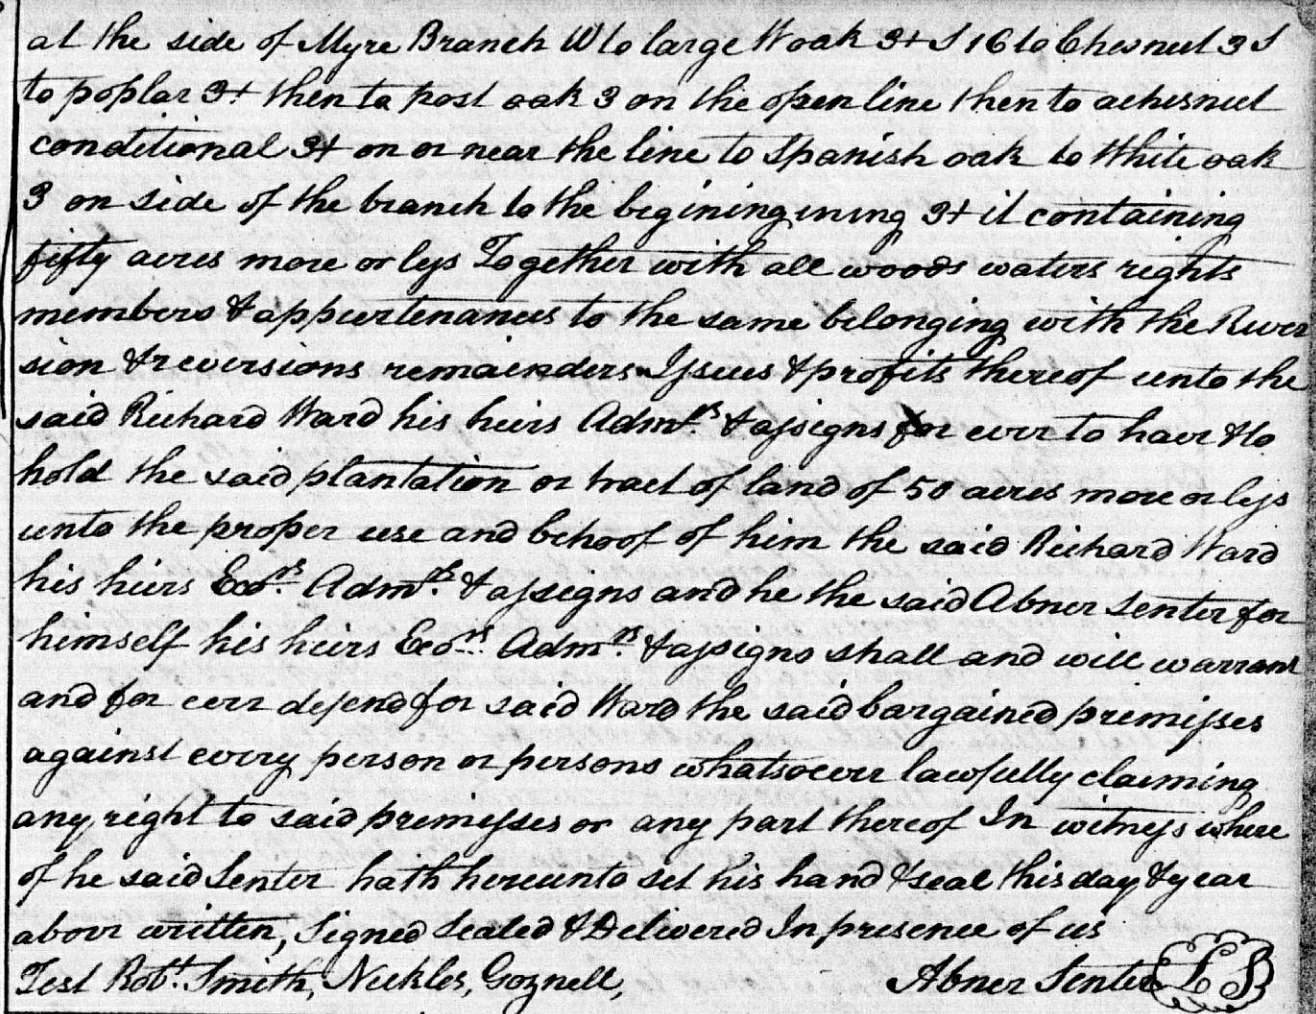 at the side of Myre Branch W to large W oak 3+ S 16 to Chesnut 3 S
to poplar 3+ then to post oak 3 on the open line then to achesnut
conditional 3+ on or near the line to Spanish oak to White oak
3 on side of the branch to the begining ining 3+ it containing
fifty acres more or less Together with all woods waters rights
members & appurtenances to the same belonging with the Rever
sion & reversions remainders Issues & profits thereof unto the
said Richard Ward his heirs Admrs. & assigns for ever to have & to
hold the said plantation or tract of land of 50 acres more or less
unto the proper use and behoof of him the said Richard Ward
his heirs Exors. Admrs. & assigns and he the said Abner Senter for
himself his heirs Exors. Admrs. & assigns shall and will warrant
and for ever defend for said Ward the said bargained premisses
against every person or persons whatsoever lawfully claiming
any right to said premisses or any part thereof In witness where
of he said Senter hath hereunto set his hand & seal this day & year
above written, Signed Sealed & Delivered In presence of us
Test Robt. Smith, Nickles, Goznell, Abner Senter LS